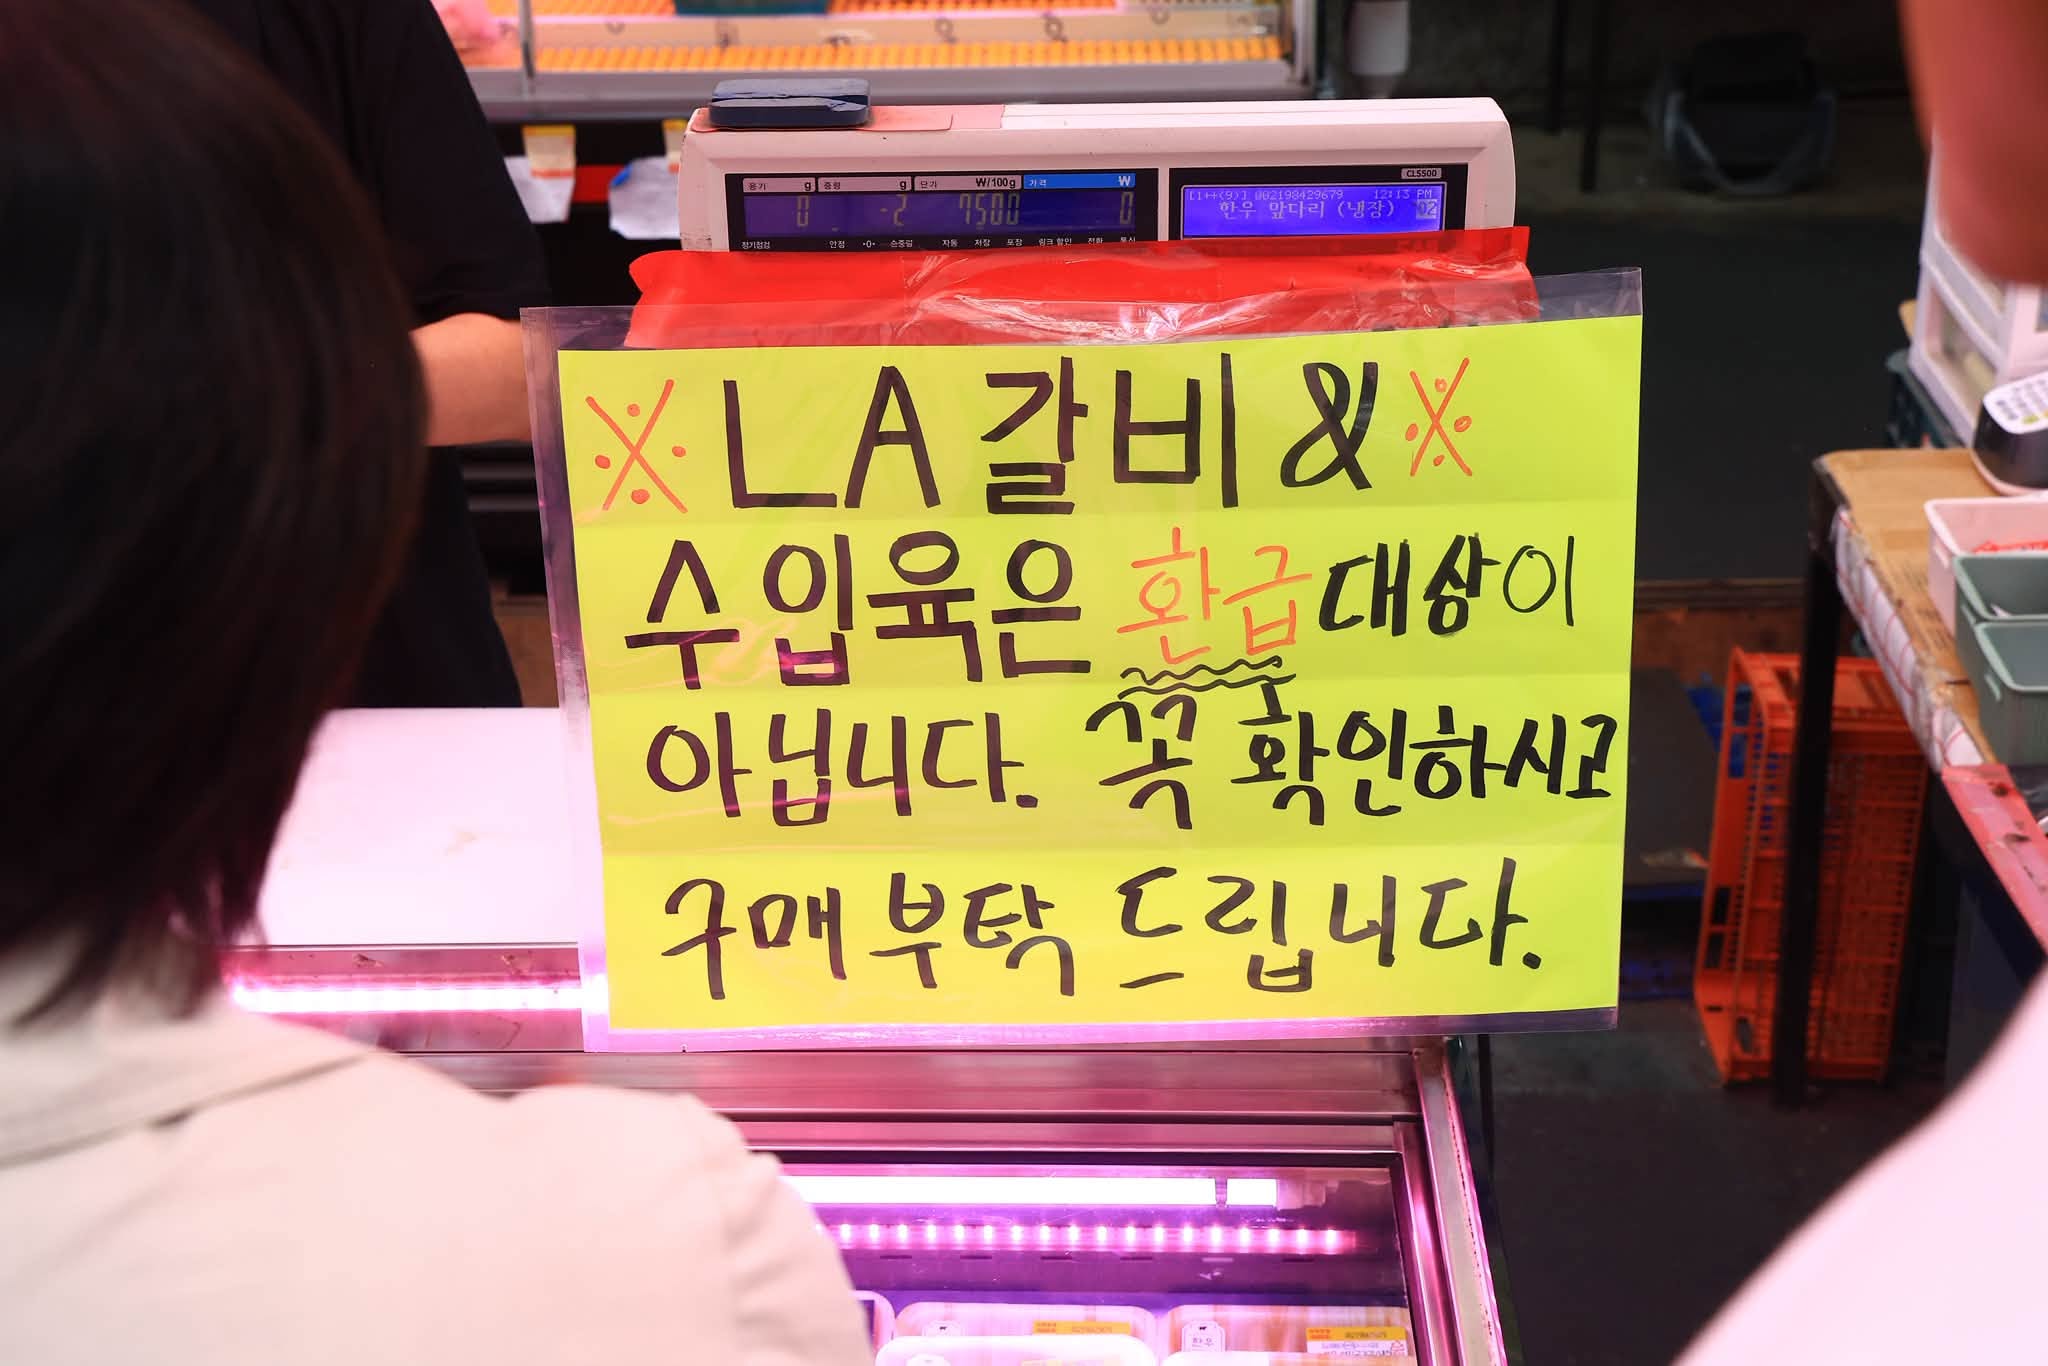 CL5500
용기 g 중량 g 단가 ₩/100g 가격 ₩
0 -2 7500 0
[1++(9)] 002198429679 12:13 PM
한우 앞다리 (냉장) 02
정기점검 안정 -0- 순중량 자동 저장 포장 링크 할인 전화 통신
※ LA갈비 & ※
수입육은 환급 대상이
아닙니다. 꼭 확인하시고
구매 부탁 드립니다.
한우